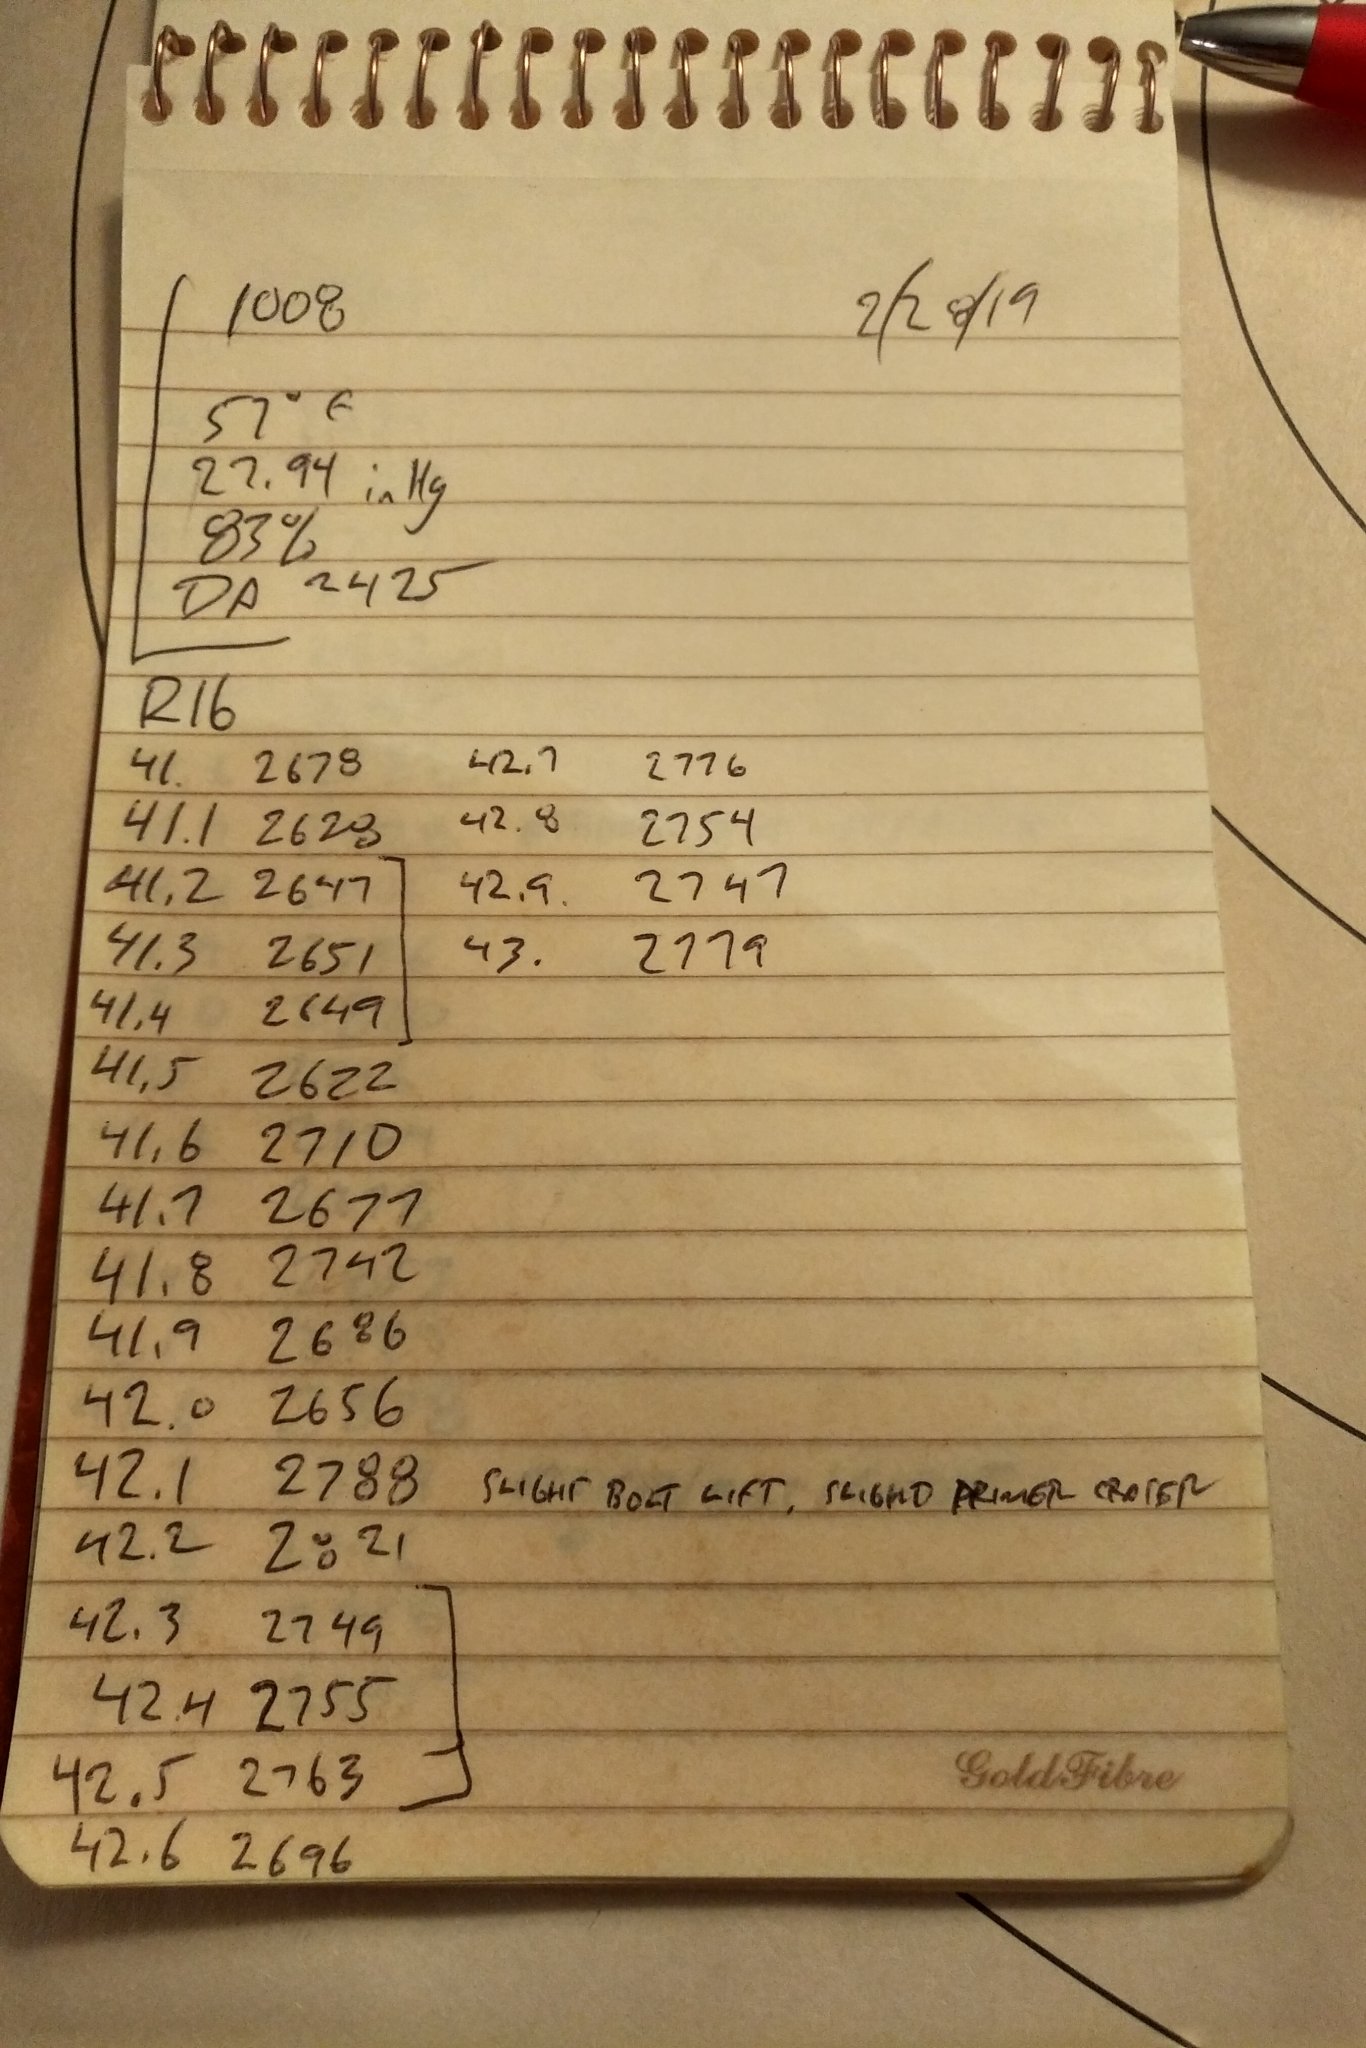 1008 2/28/19
57° F
27.94 inHg
83%
DA 2425
R16
41. 2678 42.7 2776
41.1 2628 42.8 2754
41.2 2647 42.9. 2747
41.3 2651 43. 2779
41.4 2649
41.5 2622
41.6 2710
41.7 2677
41.8 2742
41.9 2686
42.0 2656
42.1 2788 SLIGHT BOLT LIFT, SLIGHT PRIMER CRATER
42.2 2821
42.3 2749
42.4 2755
42.5 2763
GoldFibre
42.6 2696